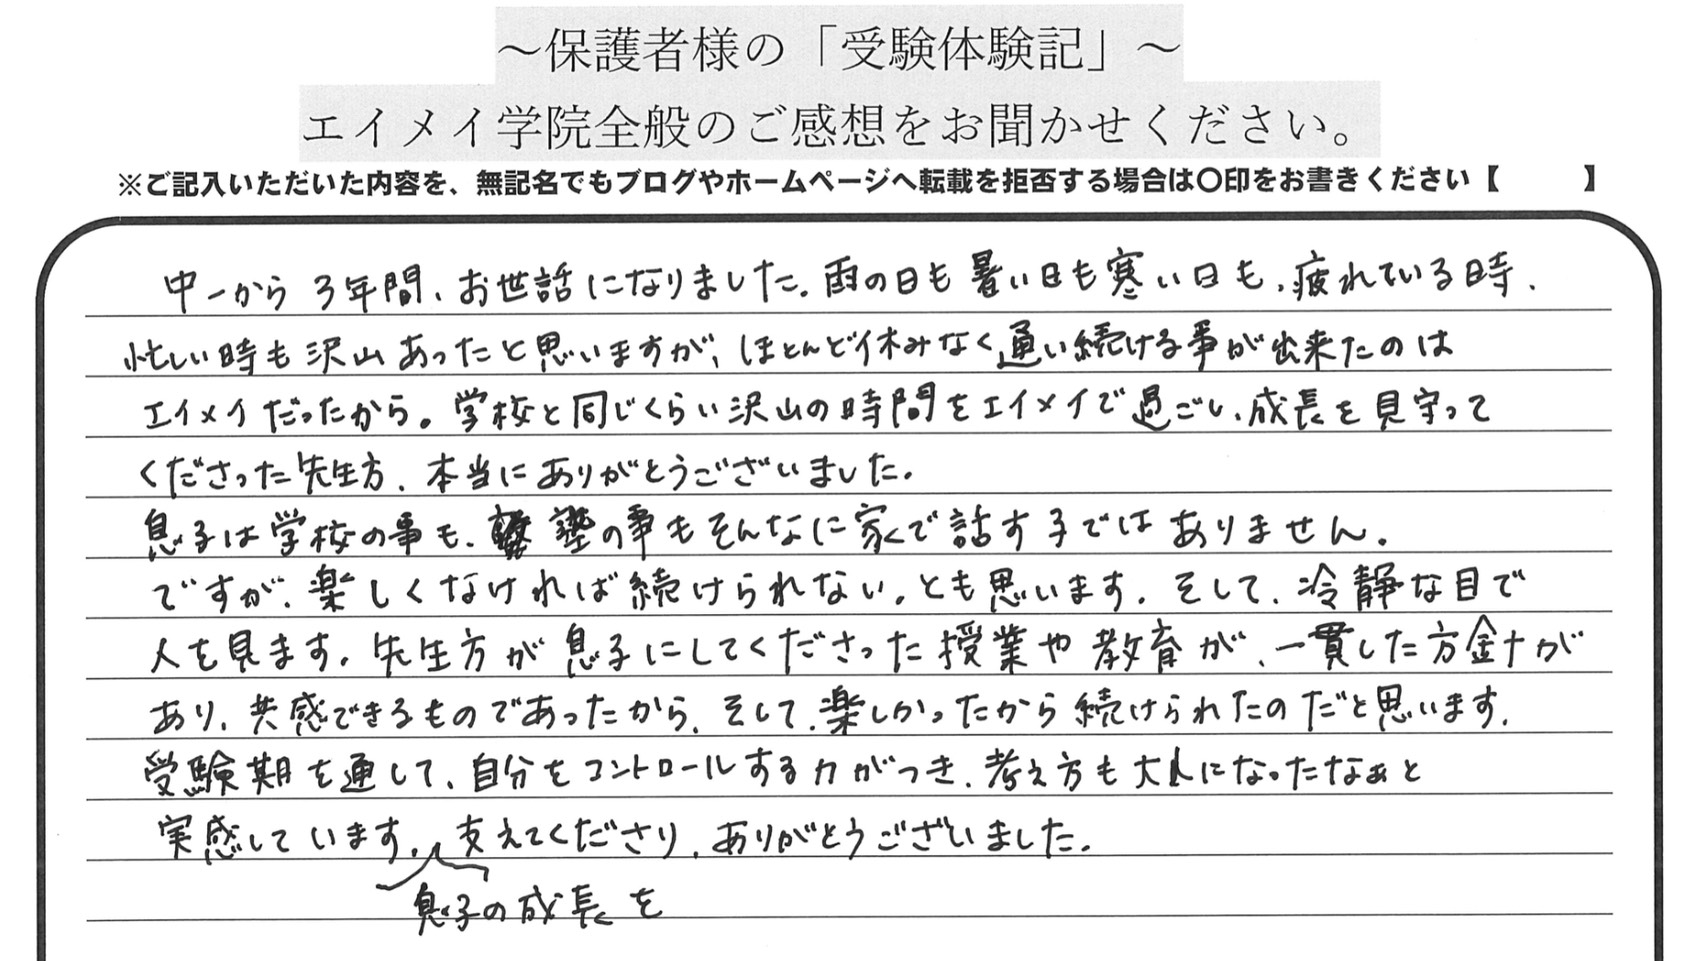 ～保護者様の「受験体験記」～
エイメイ学院全般のご感想をお聞かせください。
※ご記入いただいた内容を、無記名でもブログやホームページへ転載を拒否する場合は〇印をお書きください【　　　】
中一から3年間、お世話になりました。雨の日も暑い日も寒い日も、疲れている時、
忙しい時も沢山あったと思いますが、ほとんど休みなく通い続ける事が出来たのは
エイメイだったから。学校と同じくらい沢山の時間をエイメイで過ごし、成長を見守って
くださった先生方、本当にありがとうございました。
息子は学校の事も、塾の事もそんなに家で話す子ではありません。
ですが、楽しくなければ続けられない。とも思います。そして、冷静な目で
人を見ます。先生方が息子にしてくださった授業や教育が、一貫した方針が
あり、共感できるものであったから、そして、楽しかったから続けられたのだと思います。
受験期を通して、自分をコントロールする力がつき、考え方も大人になったなぁと
実感しています。支えてくださり、ありがとうございました。
息子の成長を